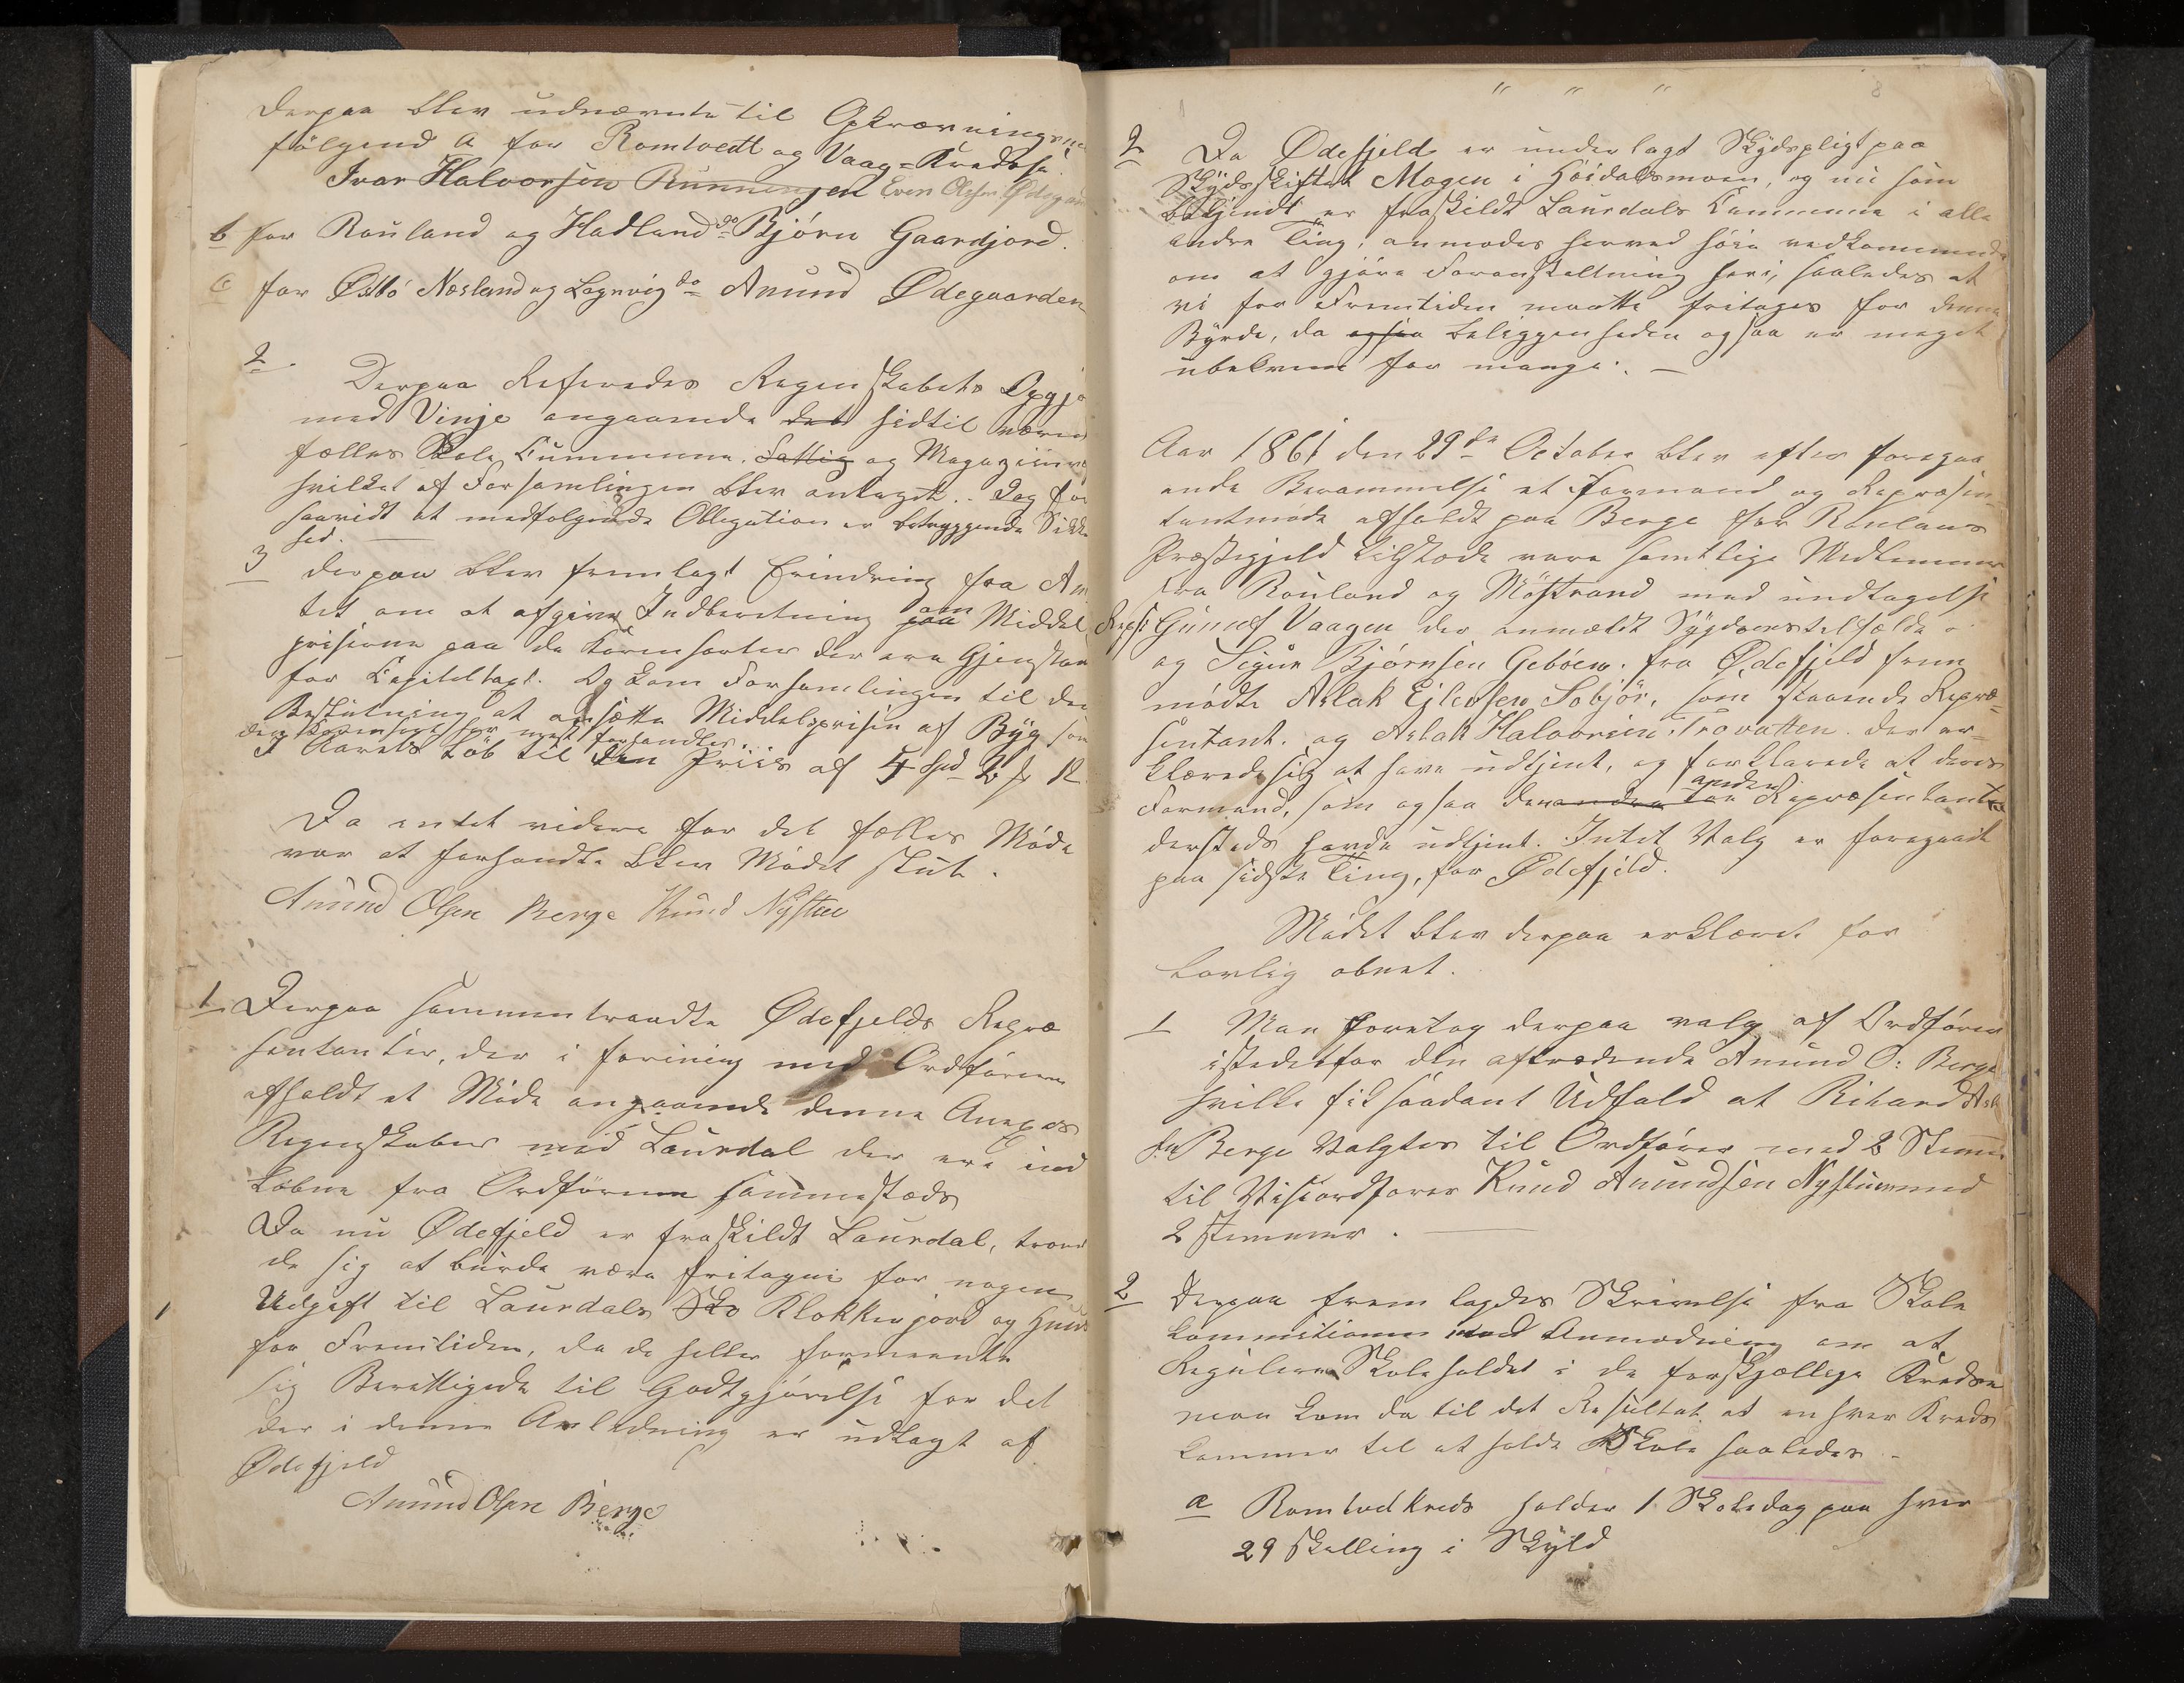 Derpaa blev udnævnte til
følgende a for Romtvedt og Vaag-Kredse.
Ivar Halvorsen Rünningen Even Olsen
b for Rauland og Hadland do Bjørn Gaardjord.
c for Østbö Næsland og Lognvig do Amund Ødegaarden
2
Derpaa Refereredes Regenskabets
med Vinje angaaende det hidtil
fælles Skole Cummune. Fattig og
hvilket af Forsamlingen blev antaget. - Dog
saavidt at medfølgende Obligation er betryggende
hed.
3 derpaa blev fremlagt Erindring fra
tet om at afgive Indberetning paa om Middel
prisene paa de Kornsorter der ere
for Capiteltaxt. Og kom Forsamlingen til den
Beslutning at ansætte Middelsprisen af Byg som
den Kornsort her mest forhandles
I Aarets Løb til den Priis af 4 Spd 2
Da intet videre for det fælles Møde
var at forhandle blev Mødet slut.
Amund Olsen Berge Knud Nystue
1 Derpaa sammentraadte Ødefjelds Repræ
sentanter, der i forening med Ordføreren
afholdt et Møde angaaende denne Anexes
Regenskaber med Laurdal der ere ind
løbne fra Ordføreren sammesteds
Da nu Ødefjeld er fraskildt Laurdal, troed
de sig at burde være fritagne for nogen
Udgift til Laurdals Sko Klokkerjord og
for Fremtiden, da de heller formeente
sig Berettigede til Godtgjørelse for det
der i denne Anledning er udlagt af
Ødefjeld
Amund Olsen Berge
" " "
8
2 Da Ødefjeld er underlagt Skydspligt paa
Skydsskiftet Mogen i Høidalsmoen, og nu som
bekjendt er fraskildt Laurdals Commune i alle
andre Ting, anmodes herved høie vedkommende
om at gjøre Foranstaltning heri, saaledes at
vi for Fremtiden maatte fritages for denne
Byrde, da ogsaa beliggenheden ogsaa er meget
ubekvem for mange. -
Aar 1861 den 29de October blev efter foregaa
ende Berammelse et Formand og Repræsen
tantmøde afholdt paa Berge for Raulands
Præstegjeld tilstede vare samtlige Medlemmer
fra Rauland og Møstrand med undtagelse
Gunuf Vaagen der anmeldt Sygdomstilfælde
og Sigur Bjørnsen Gebøen. fra Ødefjeld frem
mødte Aslak Eilevsen Sobjør, som staaende Repræ
sentant. og Aslak Halvorsen Trovatten. der er=
klærede sig at have udtjent, og forklarede at deres
Formand, som ogsaa den andre anden Repræsentant
dersteds havde udtjent. Intet Valg er foregaaet
paa sidste Ting, for Ødefjeld.
Mødet blev derpaa erklæret for
lovlig abnet.
1 Man foretog derpaa valg af Ordfører
istedetfor den aftrædende Amund O: Berge
hvilke fik saadant Udfald at Rikard
sen Berge Valgtes til Ordfører med 2 Stemmer
til Viseordfører Knud Amundsen Nystuen med
2 stemmer.
2 Derpaa fremlagdes Skrivelse fra Skole
kommitionen med Anmodning om at
Regulere Skoleholdet i de forskjællige Kredse
man kom da til det Resultat at enhver Kreds
kommer til at holde Skole saaledes -
a Romtvedt Kreds holder 1 Skoledag paa hver
29 Skelling i Skyld